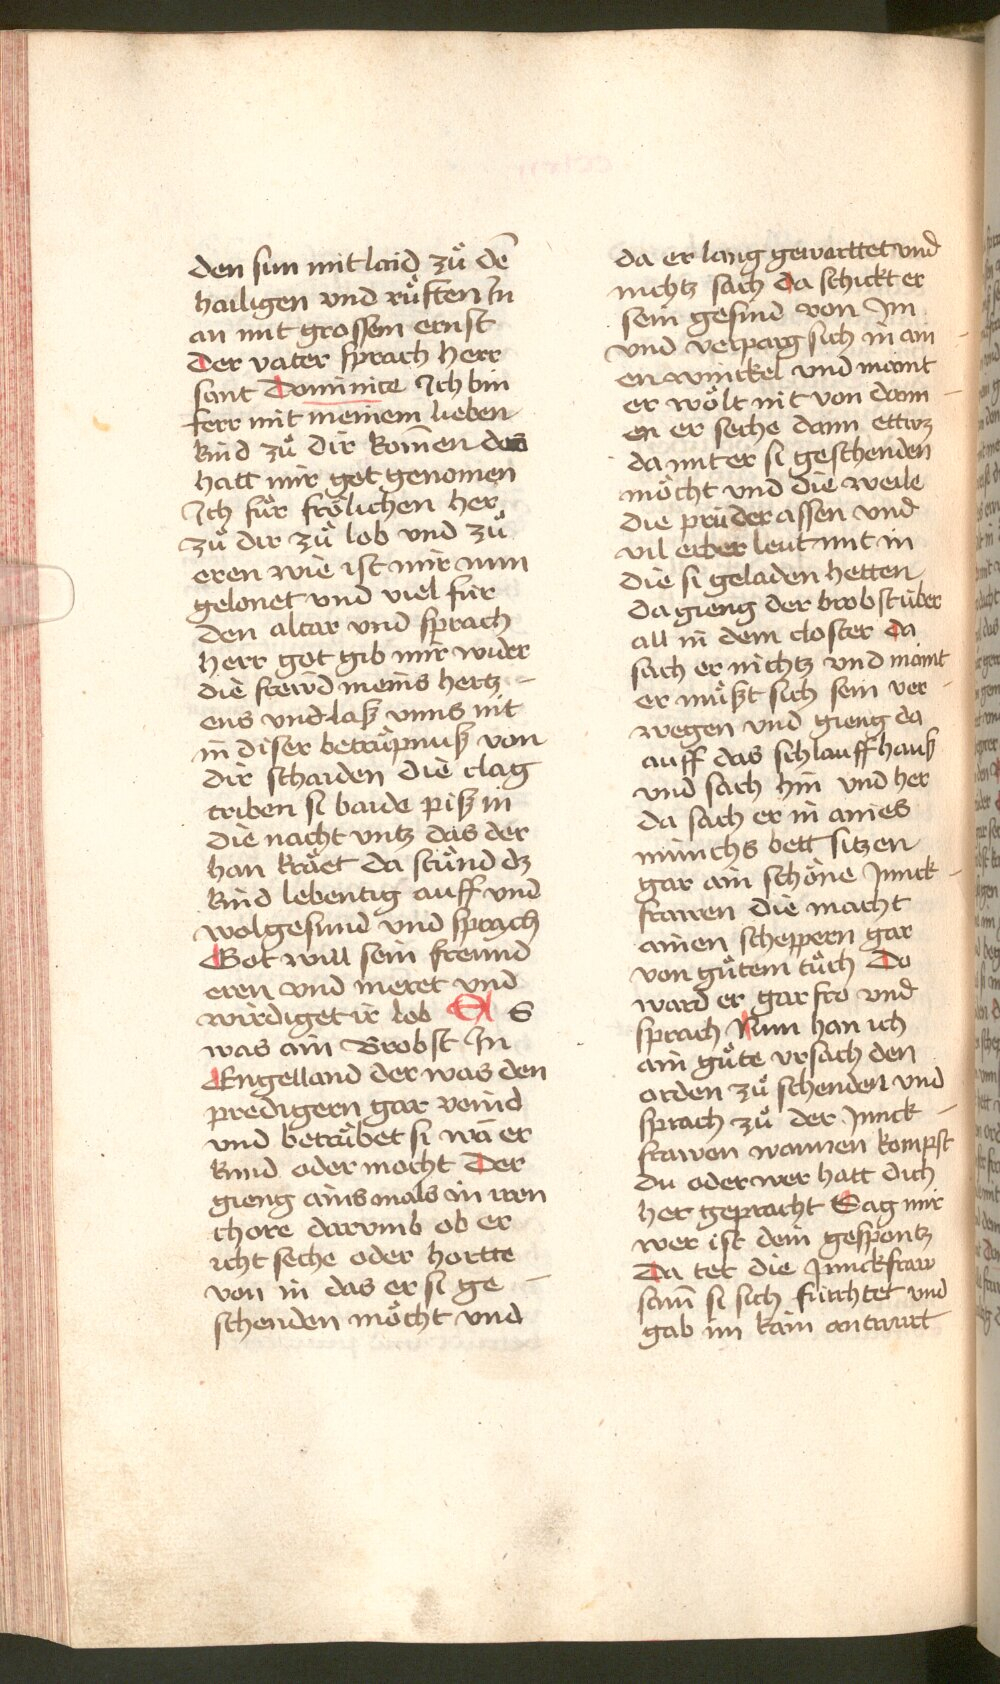 den sun mit laid zů dē
hailigen vnd růften In
an mit grossem ernst
Der vater sprach herr
sant Dominice Ich bin
ferr mit meinem lieben
kind zů dir kom̄en das
hatt mir got genomen
Ich fůr frölichen her
zů dir zů lob vnd zů
eren wie ist mir nun
gelonet vnd viel für
den altar vnd sprach
herr got gib mir wider
die frewd meins hertz
ens vnd laß vnns nit
in diser betrüpnuß von
dir schaiden die clag
triben si baide piß in
die nacht vntz das der
han kräet da stůnd dz
kind lebentig auff vnd
wolgesund vnd sprach
Got will sein freund
eren vnd meret vnd
wirdiget ir lob E S
was ain Brobst In
Engelland der was den
predigern gar veind
vnd betrübet si wā er
kund oder mocht Der
gieng ains mals in iren
chore darvmb ob er
icht seche oder hortte
von in das er si ge
schenden möcht vnd
da er lang gewarttet vnd
nichtz sach da schickt er
sein gesind von Im
vnd verparg sich in ain
en winckel vnd maint
er wölt nit von dann
en er seche dann ettwz
da mit er si geschenden
möcht vnd die weile
die prüder assen vnd
vil erber leut mit in
die si geladen hetten
da gieng der brobst über
all in dem closter da
sach er nichtz vnd maint
er müßt sich sein ver
wegen vnd gieng da
auff das schlauffhauß
vnd sach hin vnd her
da sach er in aines
münchs bett sitzen
gar ain schöne Junck
frawen die macht
ainen scheppern gar
von gůtem tůch Do
ward er gar fro vnd
sprach Nun han ich
ain gůte vrsach den
orden zů schenden vnd
sprach zů der Junck
frawen wannen kompst
du oder wer hatt dich
her gepracht Sag mir
wer ist dein gesponß
Da tet die Junckfraw
sam̄ si sich fürchtet vnd
gab im kain antwurt